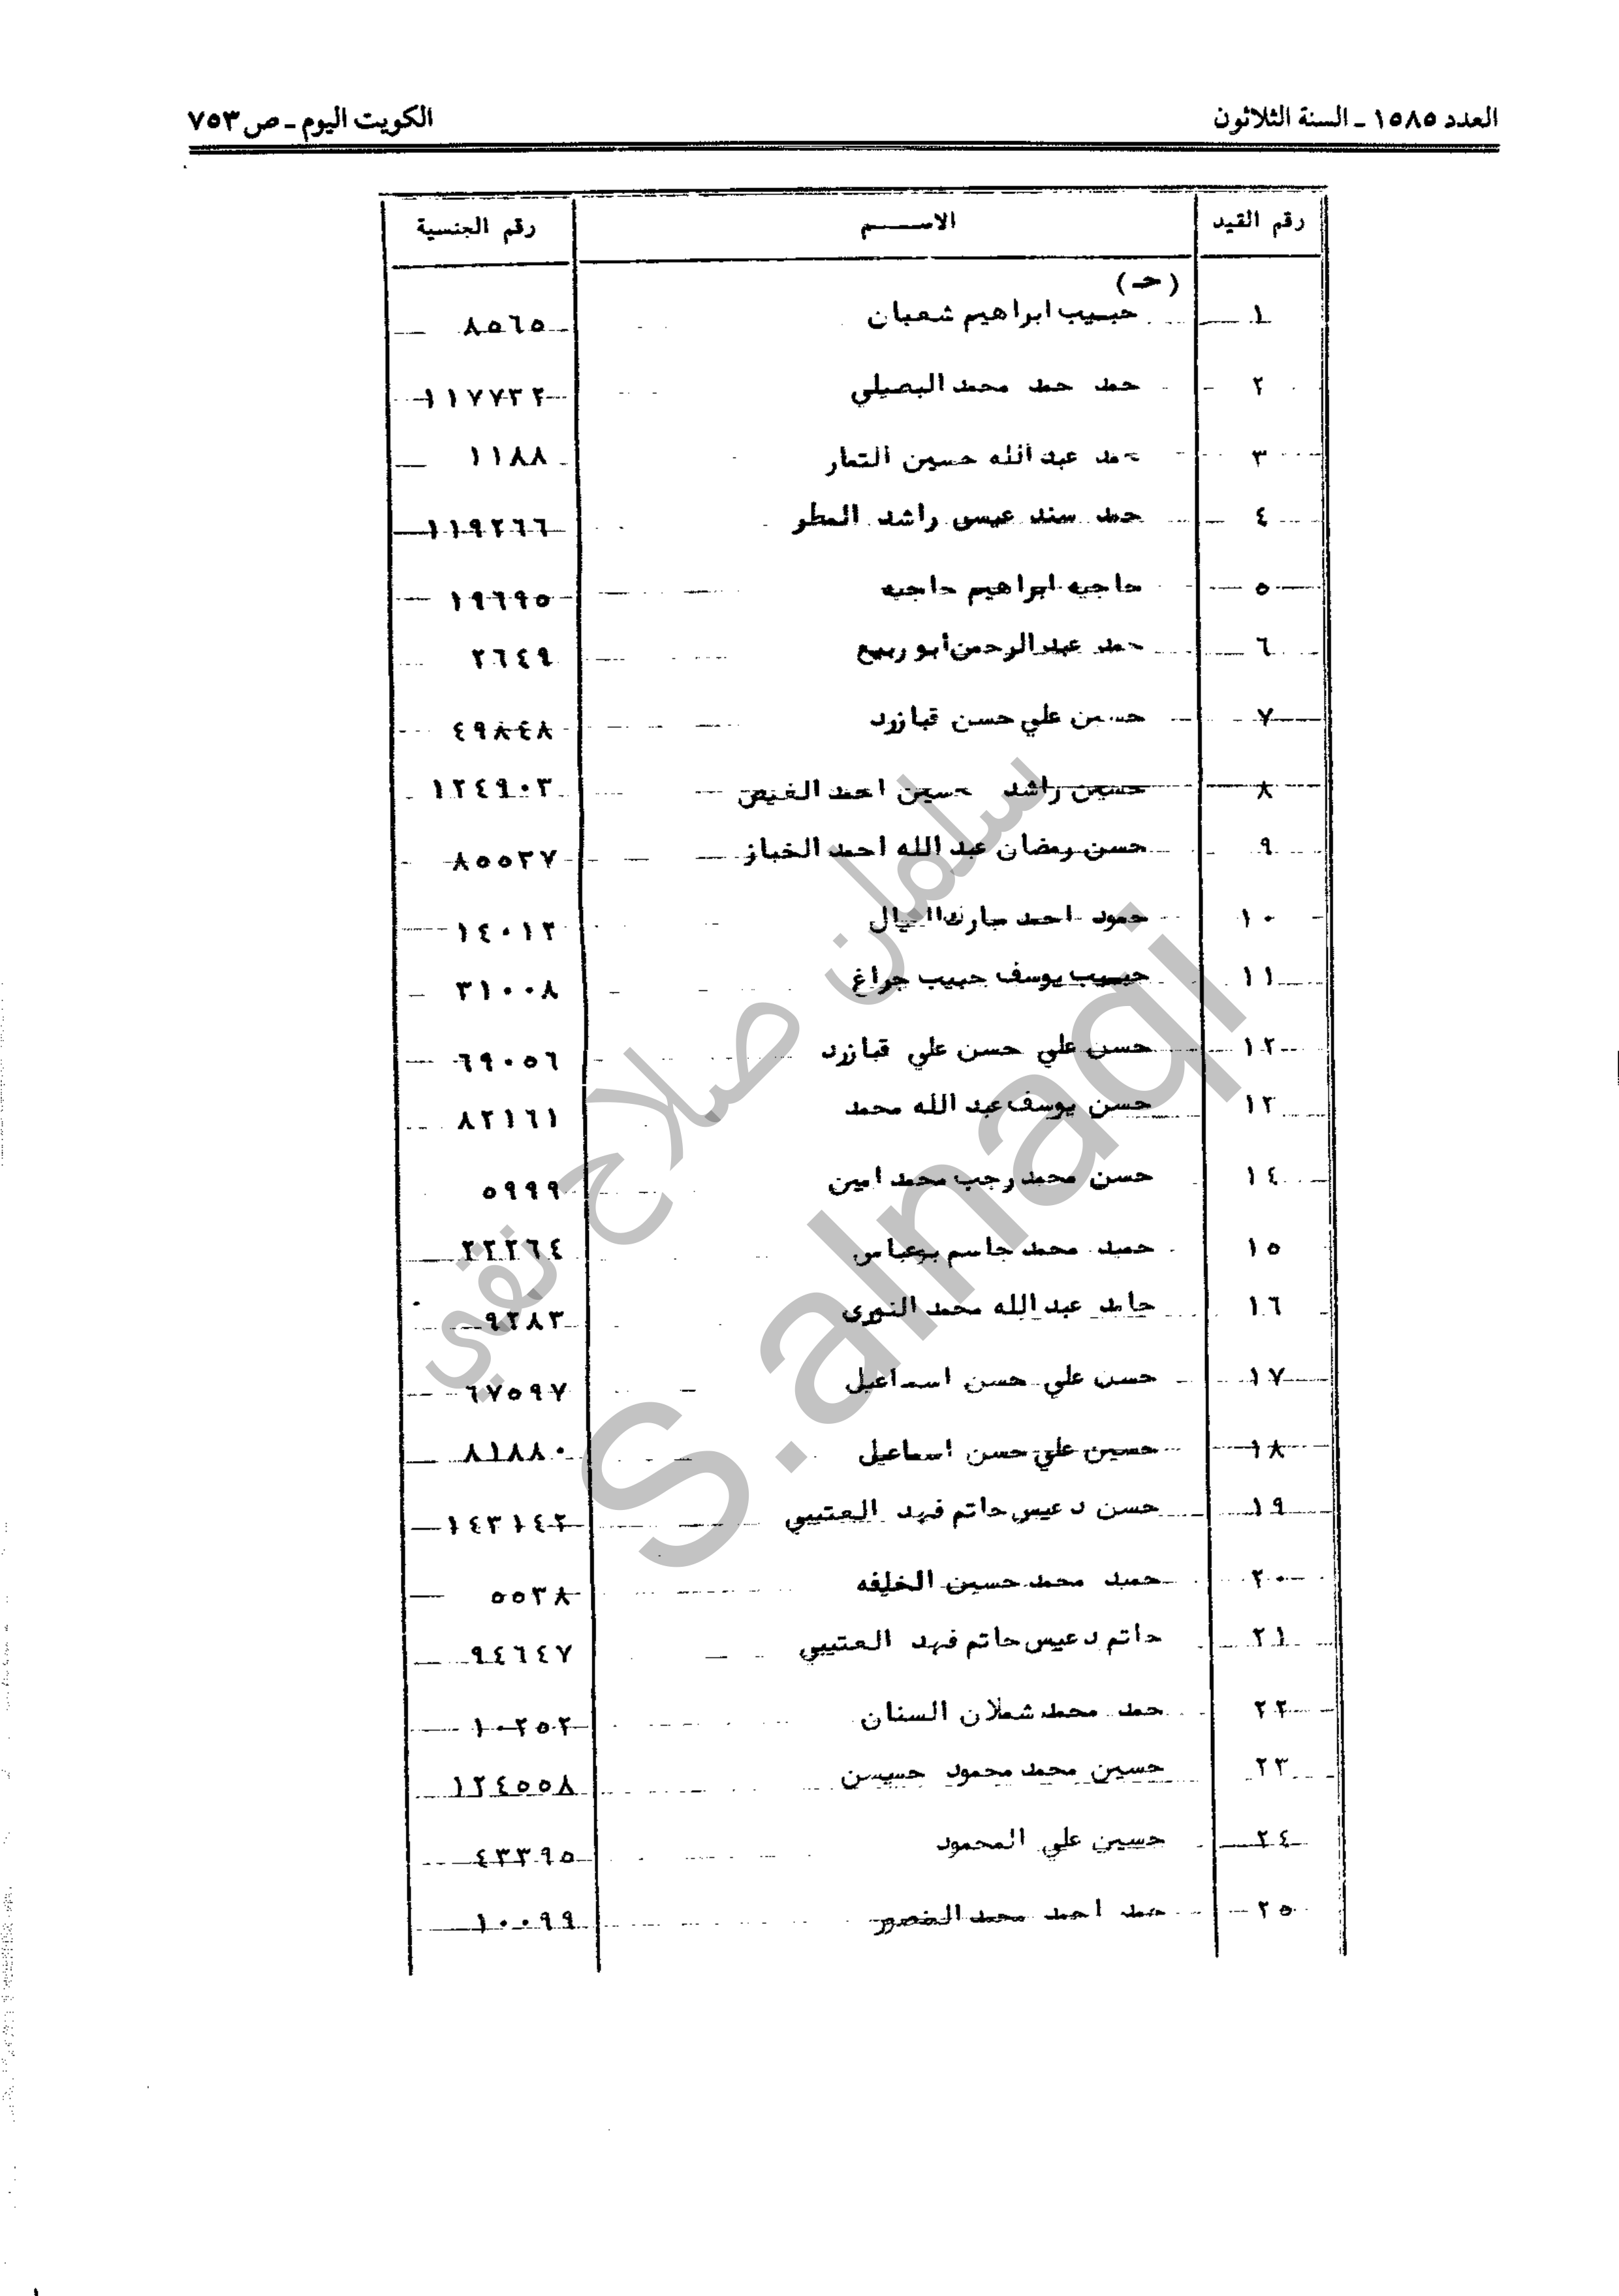 العدد ١٥٨٥ ـ السنة الثلاثون
الكويت اليوم ـ ص ٧٥٣
رقم القيد الاســـم رقم الجنسية
(حـ)
١ حبيب ابراهيم شعبان ٨٥٦٥
٢ حمد حمد محمد البصيلي ١١٧٧٣٢
٣ حمد عبد الله حسين التمار ١١٨٨
٤ حمد سند عيسى راشد المطر ١١٩٢٦٦
٥ حاجيه ابراهيم حاجيه ١٩٦٩٥
٦ حمد عبد الرحمن ابو ربيع ٢٦٤٩
٧ حسين علي حسن قبازرد ٤٩٨٤٨
٨ حسين راشد حسين احمد الغيص ١٢٤٩٠٣
٩ حسن رمضان عبد الله احمد الخباز ٨٥٥٢٧
١٠ حمود احمد مبارك ١٤٠١٢
١١ حبيب يوسف حبيب جراغ ٣١٠٠٨
١٢ حسن علي حسن علي قبازرد ٦٩٠٥٦
١٣ حسن يوسف عبد الله محمد ٨٢١٦١
١٤ حسن محمد رجب محمد امين ٥٩٩٩
١٥ حميد محمد جاسم بوعباس ٢٢٢٦٤
١٦ حامد عبد الله محمد النوري ٩٢٨٣
١٧ حسن علي حسن اسماعيل ٦٧٥٩٧
١٨ حسين علي حسن اسماعيل ٨١٨٨٠
١٩ حسن دعيس حاتم فهد العتيبي ١٤٣١٤٢
٢٠ حميد محمد حسين الخليفه ٥٥٣٨
٢١ حاتم دعيس حاتم فهد العتيبي ٩٤٦٤٧
٢٢ حمد محمد شملان السنان ١٠٢٥٢
٢٣ حسين محمد محمود حسين ١٢٤٥٥٨
٢٤ حسين علي المحمود ٤٣٣٩٥
٢٥ حمد احمد محمد المنصور ١٠٠٩٩
سلمان صلاح نقي
S.alnaqi